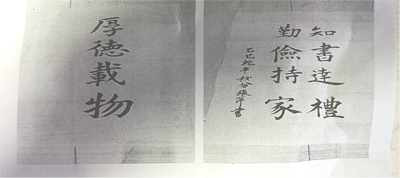 知書達禮
勤儉持家
乙巳蛇年秋分張書
厚德載物